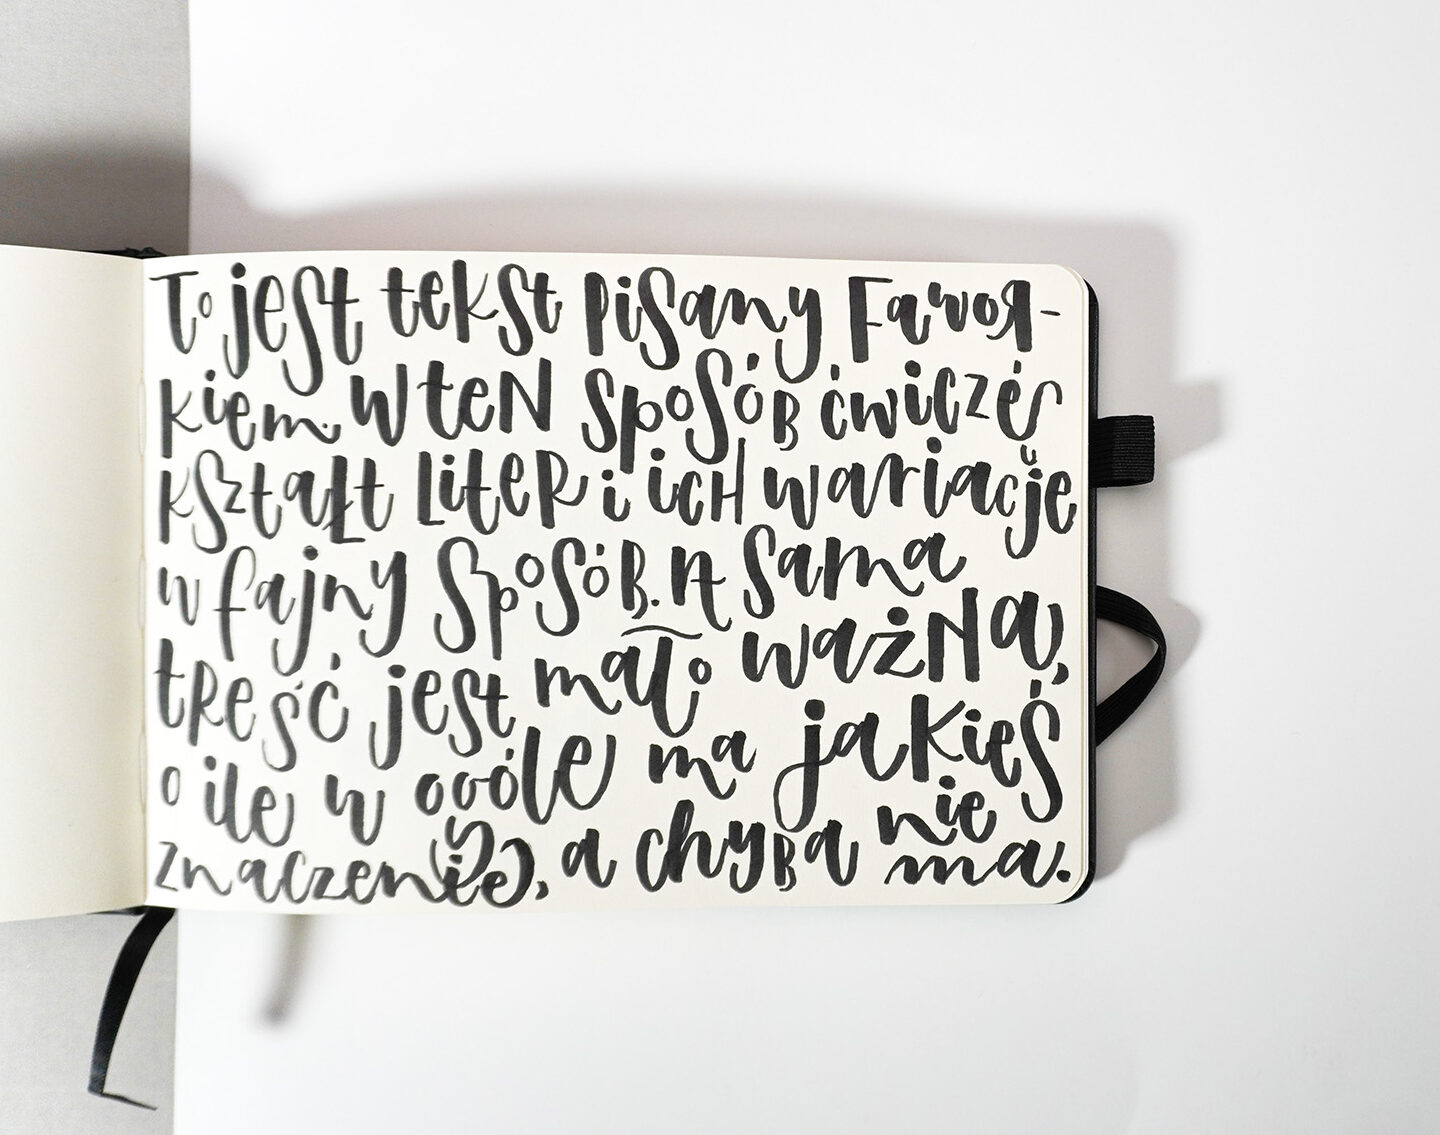 To jest tekst pisany Fawor-
kiem. W ten sposób ćwiczę
kształt liter i ich wariacje
w fajny sposób. A sama
treść jest mało ważna,
o ile w ogóle ma jakieś
znaczenie, a chyba nie
ma.